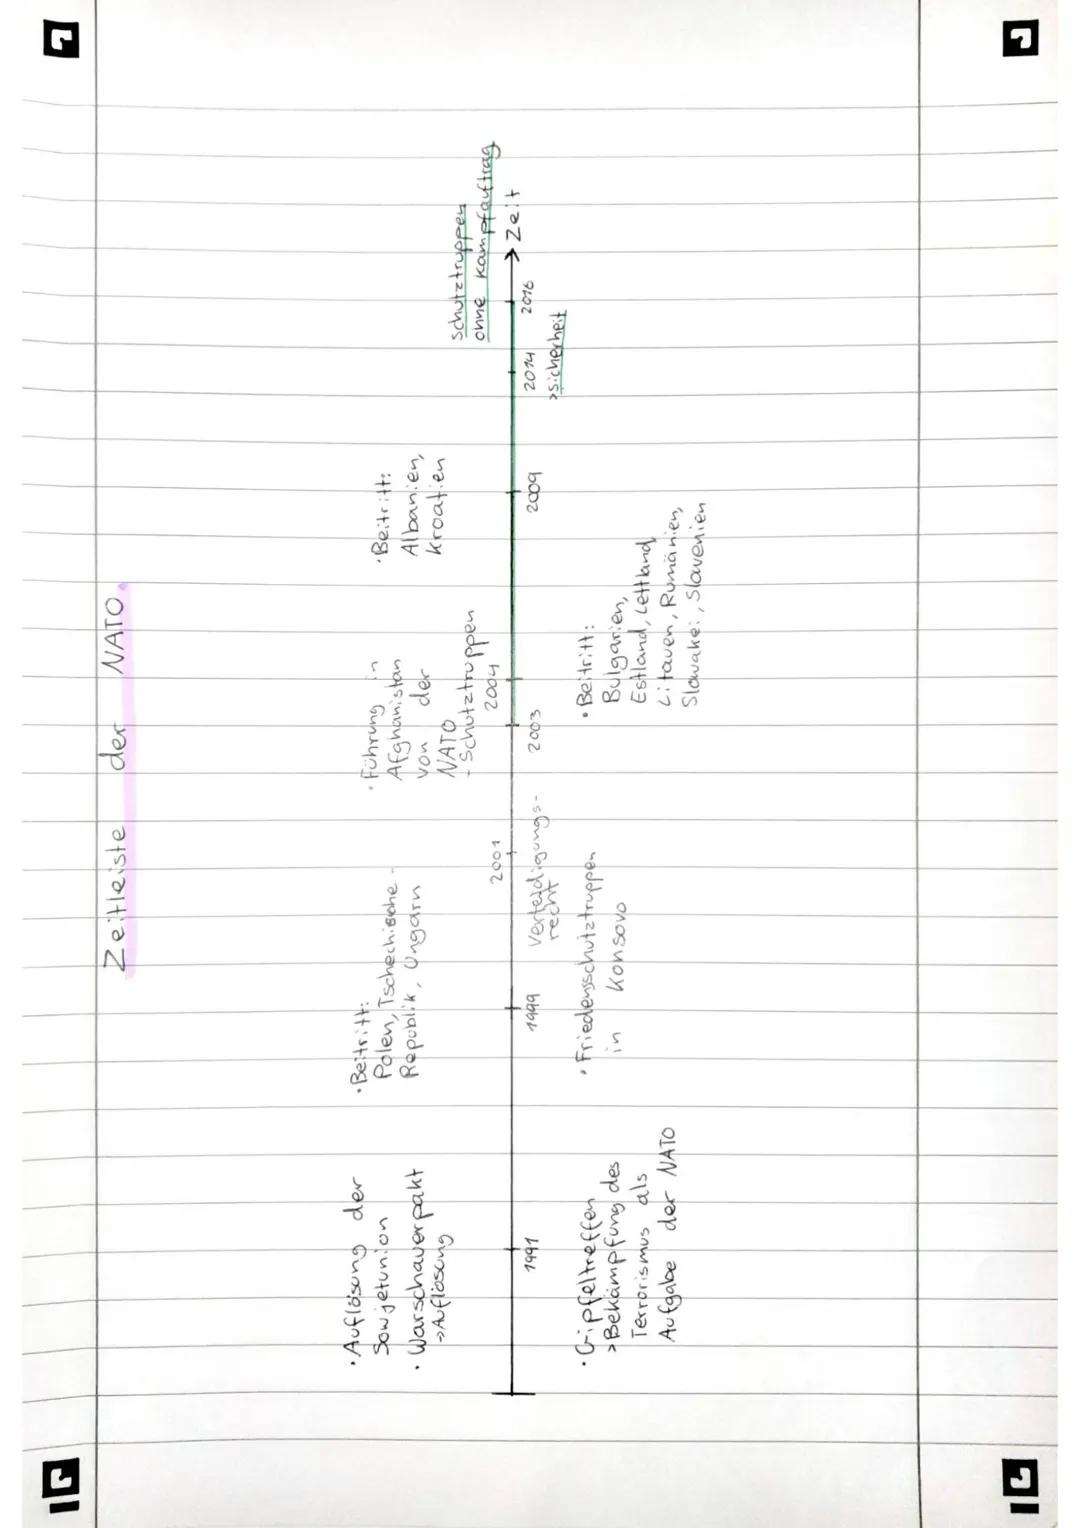 Zeitleiste der NATO
·Auflösung der
Sowjetunion
·Warschauerpakt
->Auflösung
·Beitritt:
Polen, Tschechische-
Republik, Ungarn
·Führung in
Afghanistan
von der
NATO
-Schutztruppen
·Beitritt:
Albanien,
Kroatien
Schutztruppen
ohne Kampfauftrag
1991
1999
2001
2003
2004
2009
2014
2016
Zeit
Verteidigungs-
recht
>Sicherheit
·Gipfeltreffen
>Bekämpfung des
Terrorismus als
Aufgabe der NATO
·Friedensschutztruppen
in Konsovo
·Beitritt:
Bulgarien,
Estland, Lettland,
Litauen, Rumänien,
Slowakei, Slovenien